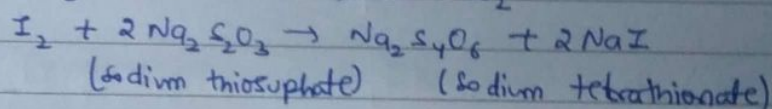 I₂ + 2 Na₂ S₂O₃ → Na₂ S₄O₆ + 2 NaI
(Sodium thiosuphate) (Sodium tetrathionate)